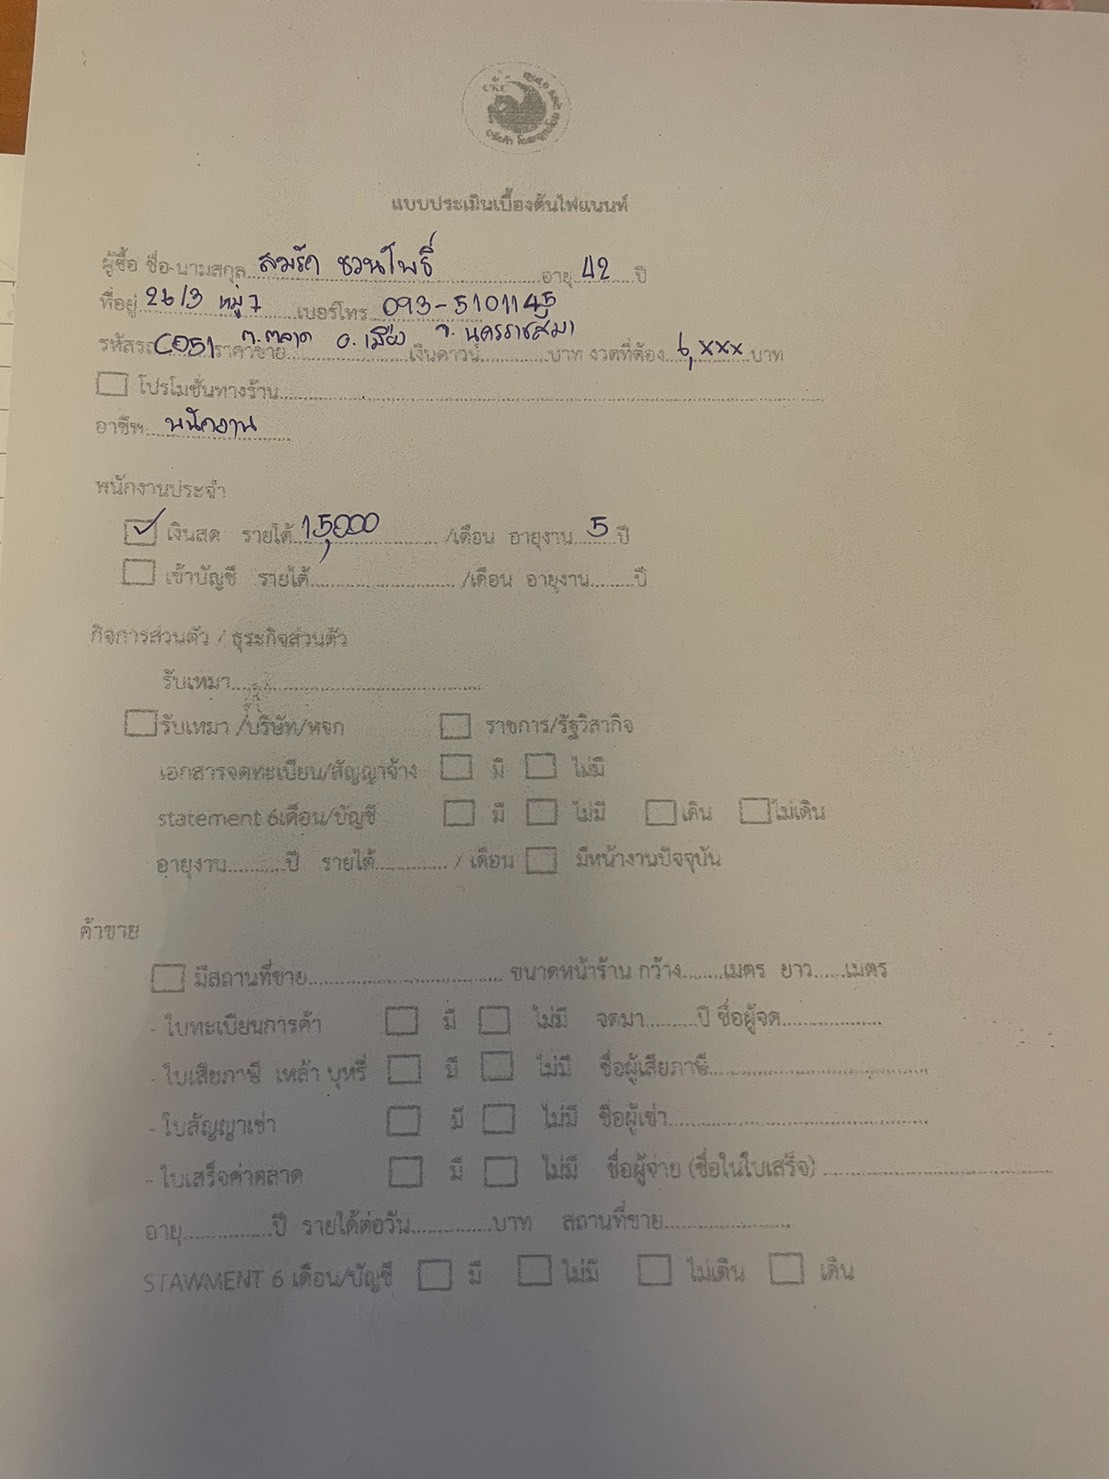 แบบประเมินเบื้องต้นไฟแนนท์
ผู้ซื้อ ชื่อ-นามสกุล สมรัก ชวนโพธิ์ อายุ 42 ปี
ที่อยู่ 26/3 หมู่ 7 เบอร์โทร 093-5101145
ต.ตลาด อ.เมือง จ.นครราชสีมา
รหัสรถ C051 ราคาขาย เงินดาวน์ บาท งวดที่ต้อง 6,xxx บาท
โปรโมชั่นทางร้าน
อาชีพ พนักงาน
พนักงานประจำ
เงินสด รายได้ 15,000 /เดือน อายุงาน 5 ปี
เข้าบัญชี รายได้ /เดือน อายุงาน ปี
กิจการส่วนตัว / ธุระกิจส่วนตัว
รับเหมา
รับเหมา /บริษัท/หจก ราชการ/รัฐวิสากิจ
เอกสารจดทะเบียน/สัญญาจ้าง มี ไม่มี
statement 6เดือน/บัญชี มี ไม่มี เดิน ไม่เดิน
อายุงาน ปี รายได้ / เดือน มีหน้างานปัจจุบัน
ค้าขาย
มีสถานที่ขาย ขนาดหน้าร้าน กว้าง เมตร ยาว เมตร
- ใบทะเบียนการค้า มี ไม่มี จดมา ปี ชื่อผู้จด
- ใบเสียภาษี เหล้า บุหรี่ มี ไม่มี ชื่อผู้เสียภาษี
- ใบสัญญาเช่า มี ไม่มี ชื่อผู้เช่า
- ใบเสร็จค่าตลาด มี ไม่มี ชื่อผู้จ่าย (ชื่อในใบเสร็จ)
อายุ ปี รายได้ต่อวัน บาท สถานที่ขาย
STAWMENT 6 เดือน/บัญชี มี ไม่มี ไม่เดิน เดิน